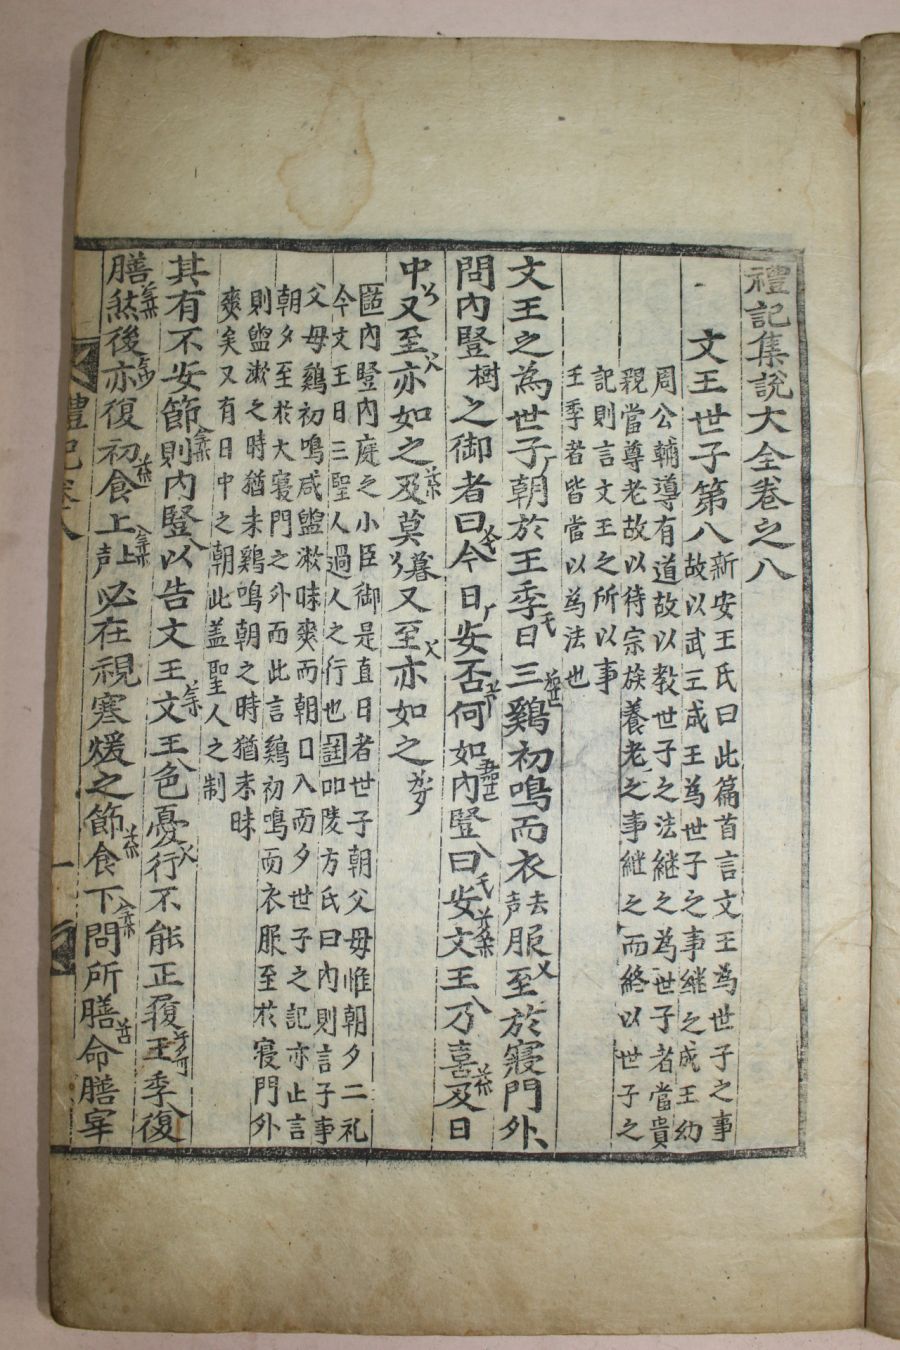 禮記集說大全卷之八
文王世子第八
新安王氏曰此篇首言文王為世子之事
故以武王成王為世子之事継之成王幼
周公輔導有道故以教世子之法継之為世子者當貴
親當尊老故以待宗族養老之事継之而終以世子之
記則言文王之所以事
王季者皆當以為法也
文王之為世子朝於王季日三鷄初鳴而衣去声服至於寢門外
問內竪樹之御者曰今日安否何如內竪曰安文王乃喜及日
中又至亦如之及莫暮又至亦如之
內竪內庭之小臣御是直日者世子朝父母惟朝夕二礼
今文王日三聖人過人之行也陵方氏曰內則言子事
父母鷄初鳴咸盥漱昧爽而朝日入而夕世子之記亦止言
朝夕至於大寢門之外而此言鷄初鳴而衣服至於寢門外
則盥漱之時猶未鷄鳴朝之時猶未昧
爽矣又有日中之朝此盖聖人之制
其有不安節則內竪以告文王文王色憂行不能正履王季復
膳然後亦復初食上上声必在視寒煖之節食下問所膳命膳宰
禮記卷八 一